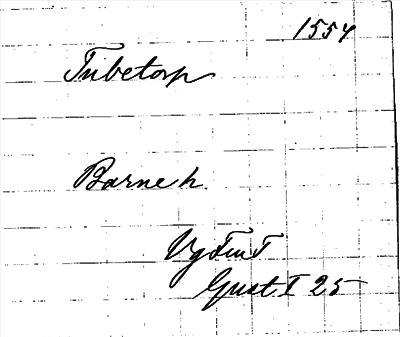 1554
Tubetorp
Barne h
Vg Tiu I
Gust I 25